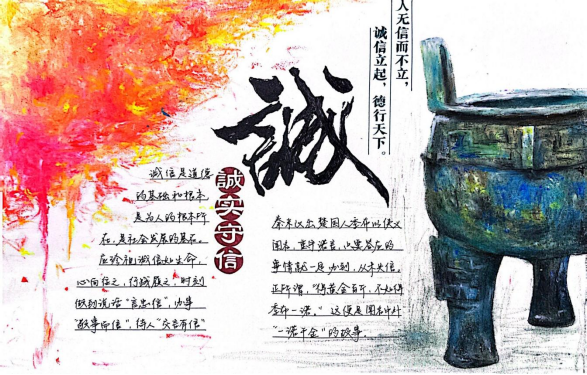 人无信而不立，
诚信立起，德行天下。
誠
誠实守信
诚信是道德
的基础和根本，
是为人的根本所
在，是社会发展的基石。
应珍惜诚信如生命，
心向信之，行诚履之，时刻
做到说话“言忠信”，办事
“敬事而信”，待人“交言有信”
秦末汉出楚国人季布以侠义
闻名，重守诺言，只要答应的
事情就一定办到，从未失信。
正所谓，“得黄金百斤，不如得
季布一诺。”这便是闻名中外
“一诺千金”的故事。